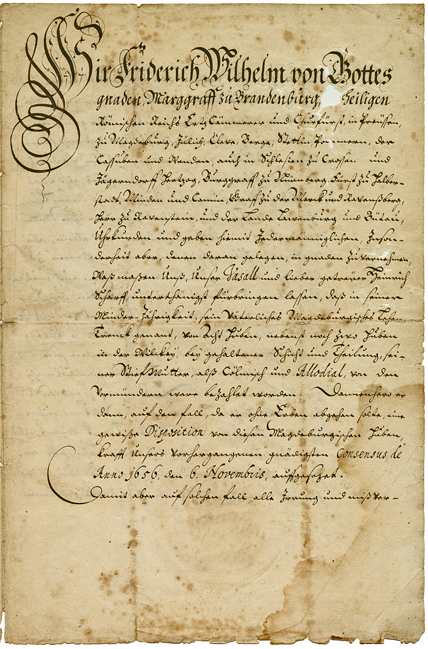 Wir Friderich Wilhelm von Gottes
gnaden, Marggraff zu Brandenburg, Heiligen
Römischen Reichs Ertz Cammerer und Churfürst, in Preüßen,
zu Magdeburg, Jülich, Cleve, Berge, Stettin Pommern, der
Caßuben und Wenden, auch in Schlesien zu Crosen und
Jägerndorff Hertzog, Burggraff zu Nürmberg Fürst zu Halber-
stadt, Minden und Camin, Graff zu der Marck und Ravensberg,
Herr zu Ravenstein, und der Lande Lauenburg und Bütau,
Uhrkunden und geben hiemit Jedermänniglichen, Inson-
derheit aber, denen daran gelegen, in gnaden zu vernehmen,
Daß Unß, Unser Vasall und lieber getreüer Heinrich
unterthänigst fürbringen laßen, daß in seiner
Minder-Jährigkeit, sein Väterliches Magdeburgisches Lehen
genant, von Acht Huben, nebenst noch zwo Huben
in der bey gehaltener Schicht und Theilung, sei-
ner Stief Mutter, alß Cölmisch und Allodial, von den
Vormündern were bezahlet worden.
denn, auf den fall, da er ohne Erben abgehen solte, eine
gewiße Disposition von diesen Magdeburgischen Huben,
krafft Unsers vorhergangenen gnädigsten Consensus, de
Anno 1656. den 6. Novembris, aufgesetzet.
Damit aber auf solchen fall alle Irrung und miß ver-